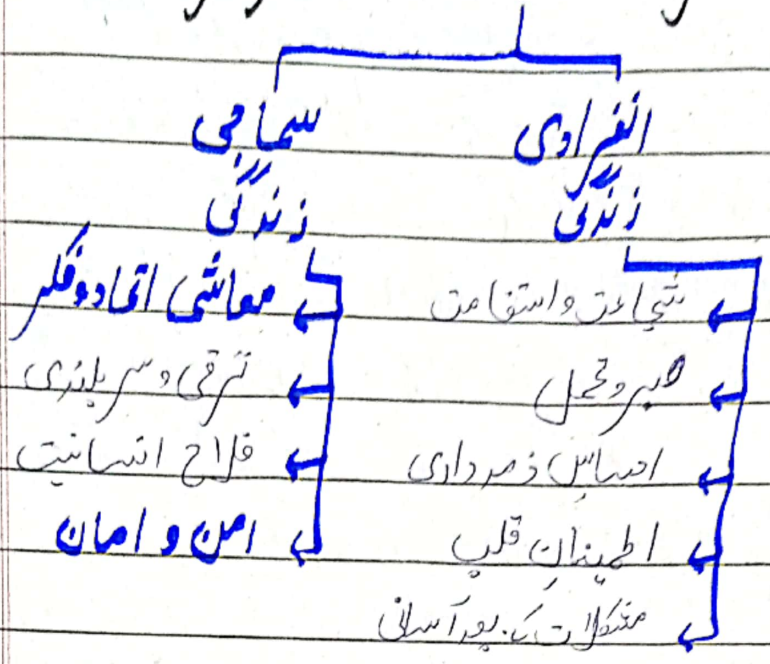 انفرادی
زندگی
شجاعت و استقامت
صبر و تحمل
احساس ذمہ داری
اطمینان قلب
مشکلات کے بعد آسانی
سماجی
زندگی
معاشی اتحاد و فکر
ترقی و سر بلندی
فلاح انسانیت
امن و امان